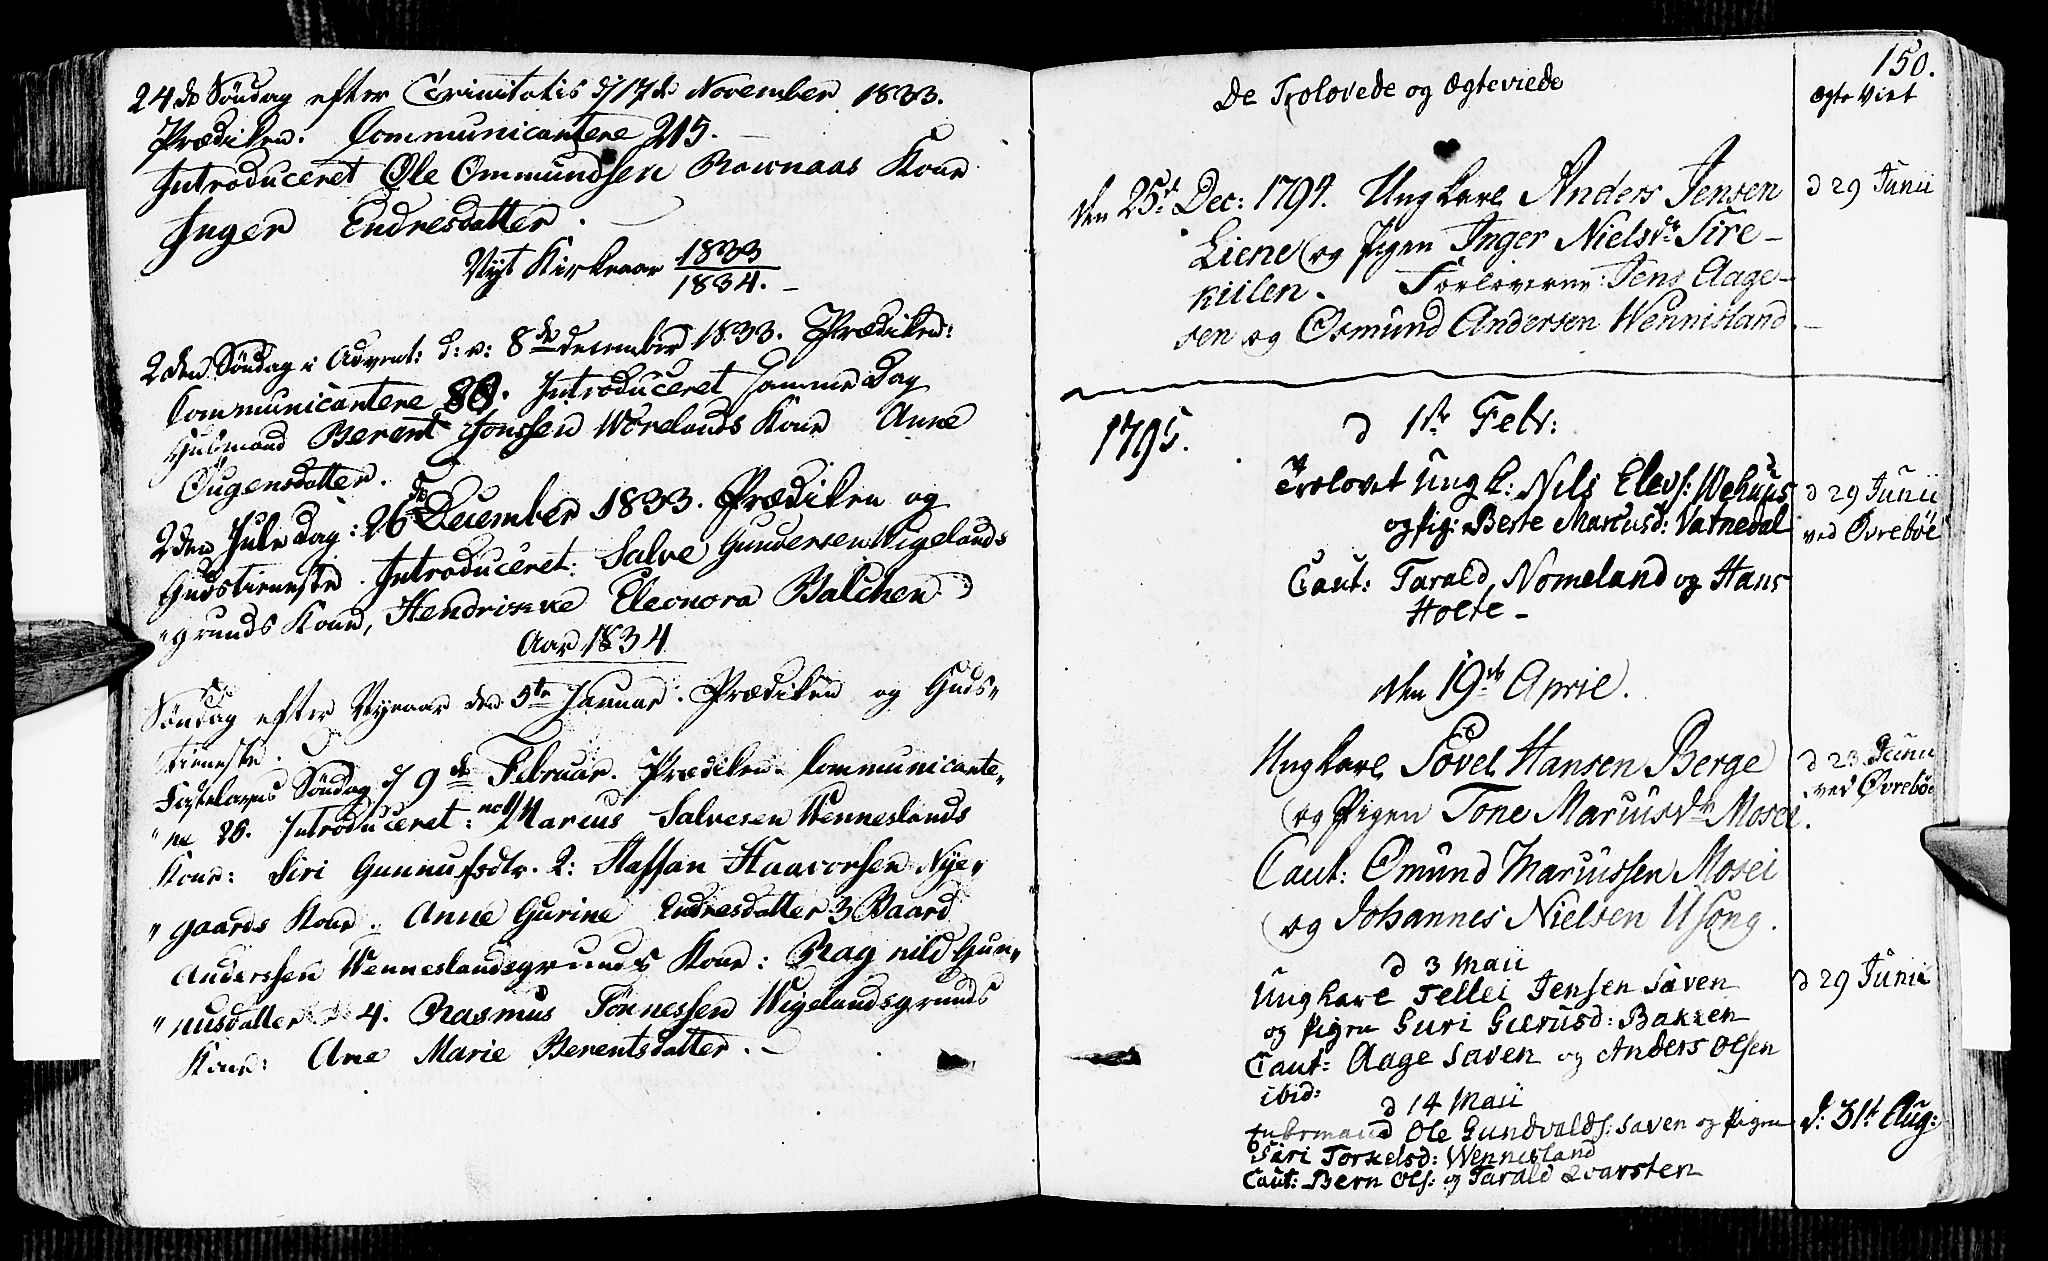 24de Søndag efter Trinitatis d 17de November 1833.
Prædiken. Communicantere 215.
Introduceret Ole Ommundsen Rawnaas Kone
Inger Endresdatter.
Nyt Kirkeaar 1833
1834.
2den Søndag i Advent: d: v: 8de December 1833. Prædiken:
Communicantere 80. Introduceret samme Dag
Huusmand Berent Jonssen Wørelands Kone Anne
Øugensdatter.
2den Jule Dag: 26de December 1833. Prædiken og
Gudstieneste. Introduceret: Salve Gundersen Wigelands
"grunds Kone, Hendrikke Eleonora Balchen
Aar 1834
Søndag efter Nyeaar den 5te Januar. Prædiken og Guds"
tieneste.
Fastelavns Søndag d 9de Februar. Prædiken. Communicante"
"ne 26. Introduceret: no 1 Marcus Salvesen Wenneslands
Kone: Siri Gunnufsdtr. 2: Staffan Haavorsen Nye"
"gaards Kone: Anne Gurine Endresdatter 3 Baard
Anderssen Wenneslandsgrunds Kone: Ragnild Gun"
"nusdatter 4. Rasmus Tønnessen Wigelandsgrunds
Kone: Ane Marie Berentsdatter.
150.
De Trolovede og Ægteviede
Ægte Viet
Den 25de Dec: 1794. Ungkarl Anders Jensen
d 29 Junii
Liene og Pigen Inger Nielsdr Tire-
kiilen. Forloverne: Jens Aage-
sen og Osmund Andersen Wennisland.
1795.
d 1ste Febr:
Trolovet Ungk: Nils Elevs: Wehuus
d 29 Junii
og Pig: Berte Marcusd: Vatnedal
ved Øvrebøe
Caut: Tarald Nomeland og Hans
Holte -
Den 19de April.
Ungkarl Povel Hansen Berge
d 23 Junii
ved Øvrebøe
og Pigen Tone Marcusdr Mosei.
Caut: Omund Marcussen Mosei
og Johannes Nielsen Usong.
d 3 Maii
Ungkarl Tellei Jensen Saven
d 29 Junii
og Pigen Guri Gierusd: Bakken
Caut: Aage Saven og Anders Olsen
ibid:
d 14 Maii
Enkemand Ole Gundvalds: Saven og Pigen
d: 31t Aug:
Siri Torkelsd: Wennisland
Caut: Bern Ols: og Tarald Qvarsten